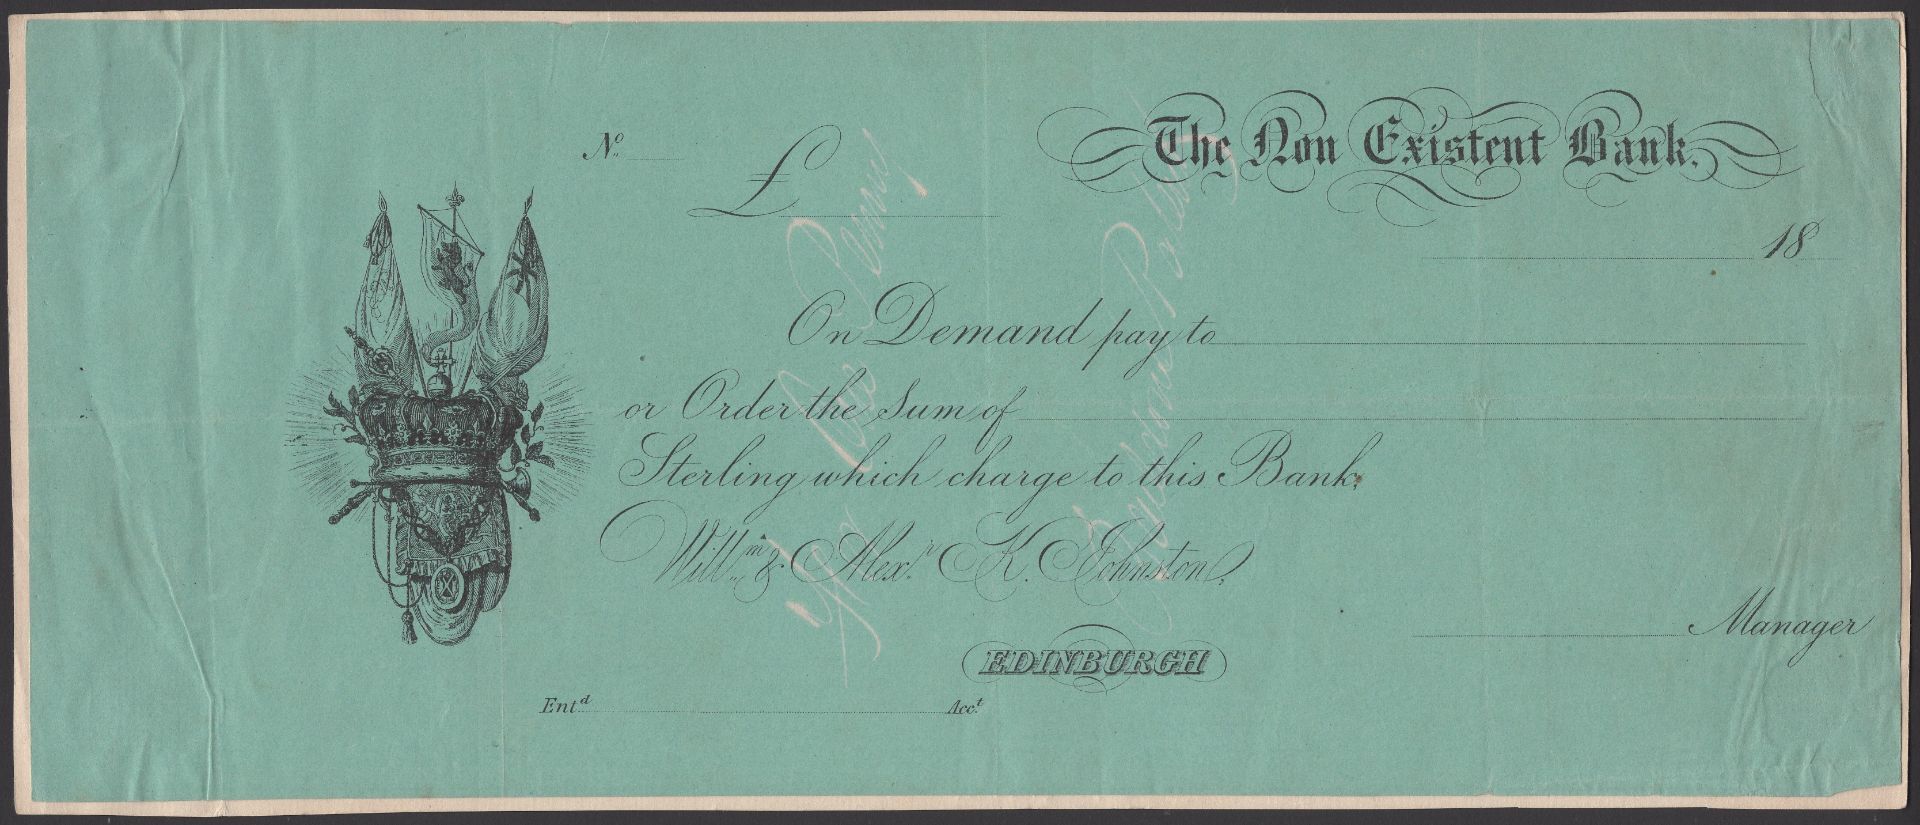 The Non Existent Bank.
No.
£
18
On Demand pay to
or Order the Sum of
Sterling which charge to this Bank.
Will.m & Alex.r K. Johnston.
EDINBURGH
Manager
Ent.d
Acc.t